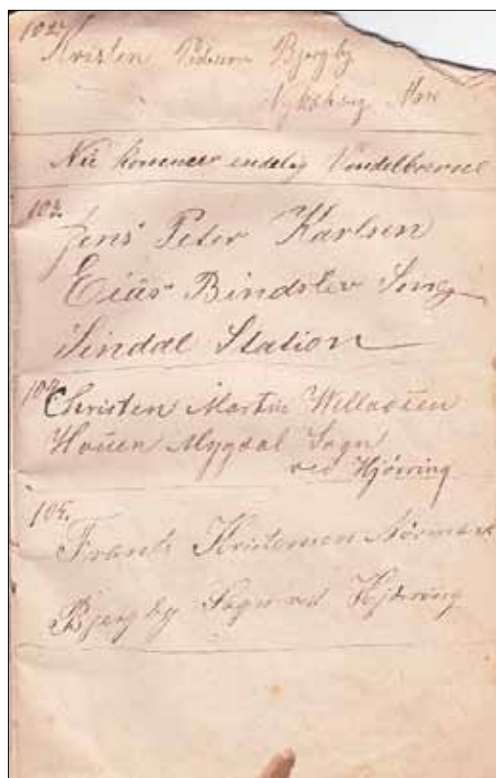 102.
Kristen Pedersen Bjergby
Nykøbing Mors
Nu kommer endelig Vendelboerne
103.
Jens Peter Karlsen
Eiås Bindslev Sogn
Sindal Station
104.
Christen Martin Willadsen
Houen Mygdal Sogn
ved Hjörring
105.
Frants Kristensen Nörmark
Bjergby Sogn ved Hjörring